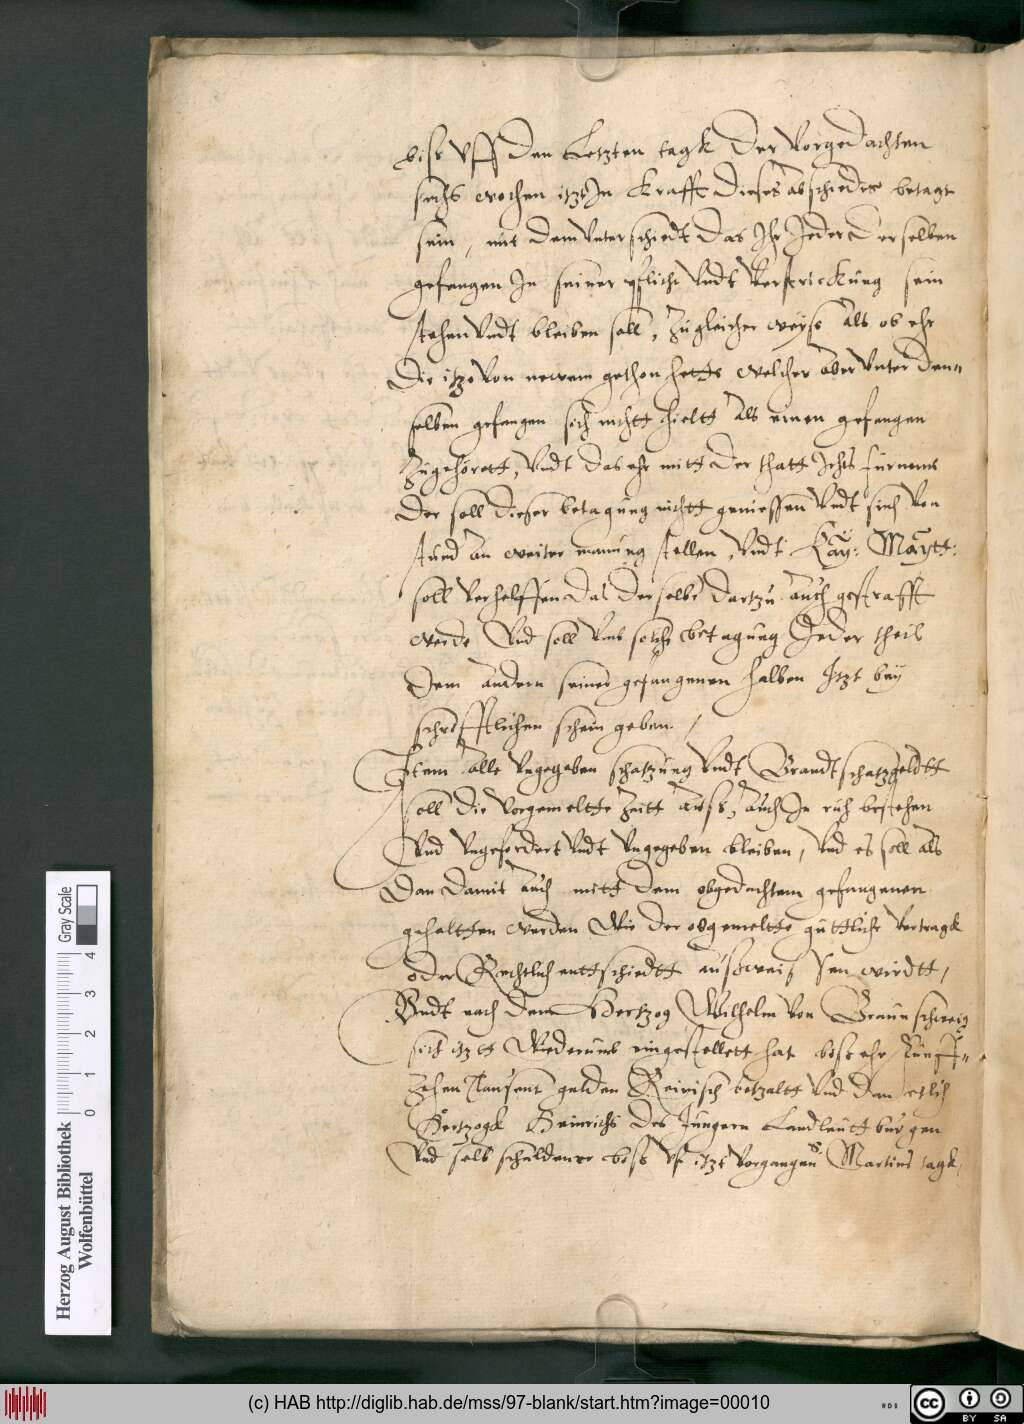 biss vff den Letzten tagk der vorgedachten
sechs wochen itzt In krafft dieses abschiedes betagt
sein, mit dem vnterschiedt das Ihr Jeder derselben
gefangen In seiner pflicht vndt verstrickung sein
stehen vndt bleiben soll, zu gleicher weyss als ob ehr
die itzo von newem gethon hette welcher aber vnter den=
selben gefangen sich nichtt hieltt als einen gefangen
zugehörett, vndt das ehr mitt der thatt Ichts fürneme
der soll dieser betagung nichtt geniessen vndt sich von
stund an weiter manung stellen, vndt Kay: Maytt:
soll verhelffen das derselbe dartzu auch gestrafft
werde vnd soll vmb solche betagung Jeder theil
dem andern seiner gefangenen halben Itzt bey
schrifftlichen schein geben /
Item alle vngegeben schatzung vndt Brandtschatzgeldtt
soll die vorgemeltte zeitt auss, auch In ruh bestehen
vnd vngefordert vndt vngegeben bleiben, vnd es soll als
dan damit auch mitt dem obgedachtem gefangenen
gehaltten werden wie der obgemeltte guttliche vertragk
oder Rechtlich enttschiedtt aussweissen wirdtt,
Vndt nach dem Hertzog Wilhelm von Braunschweig
sich itztt wiederumb eingestellett hat biss ehr funff=
zehen Tausent gulden Reinisch betzaltt vnd dan etlich
Hertzogk Heinrichs des Jungern Landleutt burgen
vnd selbschuldener biss vf itzt vorgangen S. Martins tagk,
Herzog August Bibliothek
Wolfenbüttel
0 1 2 3 4
Gray Scale
(c) HAB http://diglib.hab.de/mss/97-blank/start.htm?image=00010
cc BY SA